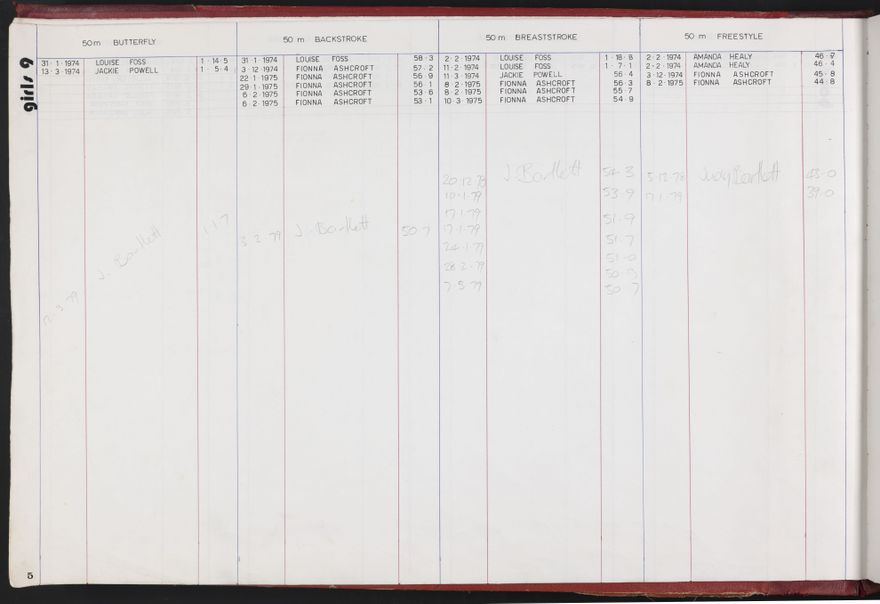 girls 9
50m BUTTERFLY
31·1·1974 LOUISE FOSS 1·14·5
13·3·1974 JACKIE POWELL 1·5·4
J. Bartlett 1·1·7
50 m BACKSTROKE
31·1·1974 LOUISE FOSS 58·3
3·12·1974 FIONNA ASHCROFT 57·2
22·1·1975 FIONNA ASHCROFT 56·9
29·1·1975 FIONNA ASHCROFT 56·1
6·2·1975 FIONNA ASHCROFT 53·6
6·2·1975 FIONNA ASHCROFT 53·1
3·2·79 J. Bartlett 50·7
50 m BREASTSTROKE
2·2·1974 LOUISE FOSS 1·18·8
11·2·1974 LOUISE FOSS 1·7·1
11·3·1974 JACKIE POWELL 56·4
8·2·1975 FIONNA ASHCROFT 56·3
8·2·1975 FIONNA ASHCROFT 55·7
10·3·1975 FIONNA ASHCROFT 54·9
20·12·78 J. Bartlett 54·3
10·1·79 53·9
17·1·79 51·9
17·1·79 51·7
24·1·79 51·0
28·2·79 50·9
7·5·79 50·7
50 m FREESTYLE
2·2·1974 AMANDA HEALY
2·2·1974 AMANDA HEALY 46·4
3·12·1974 FIONNA ASHCROFT 45·8
8·2·1975 FIONNA ASHCROFT 44·8
5·12·78 Judy Bartlett 43·0
17·1·79 39·0
5